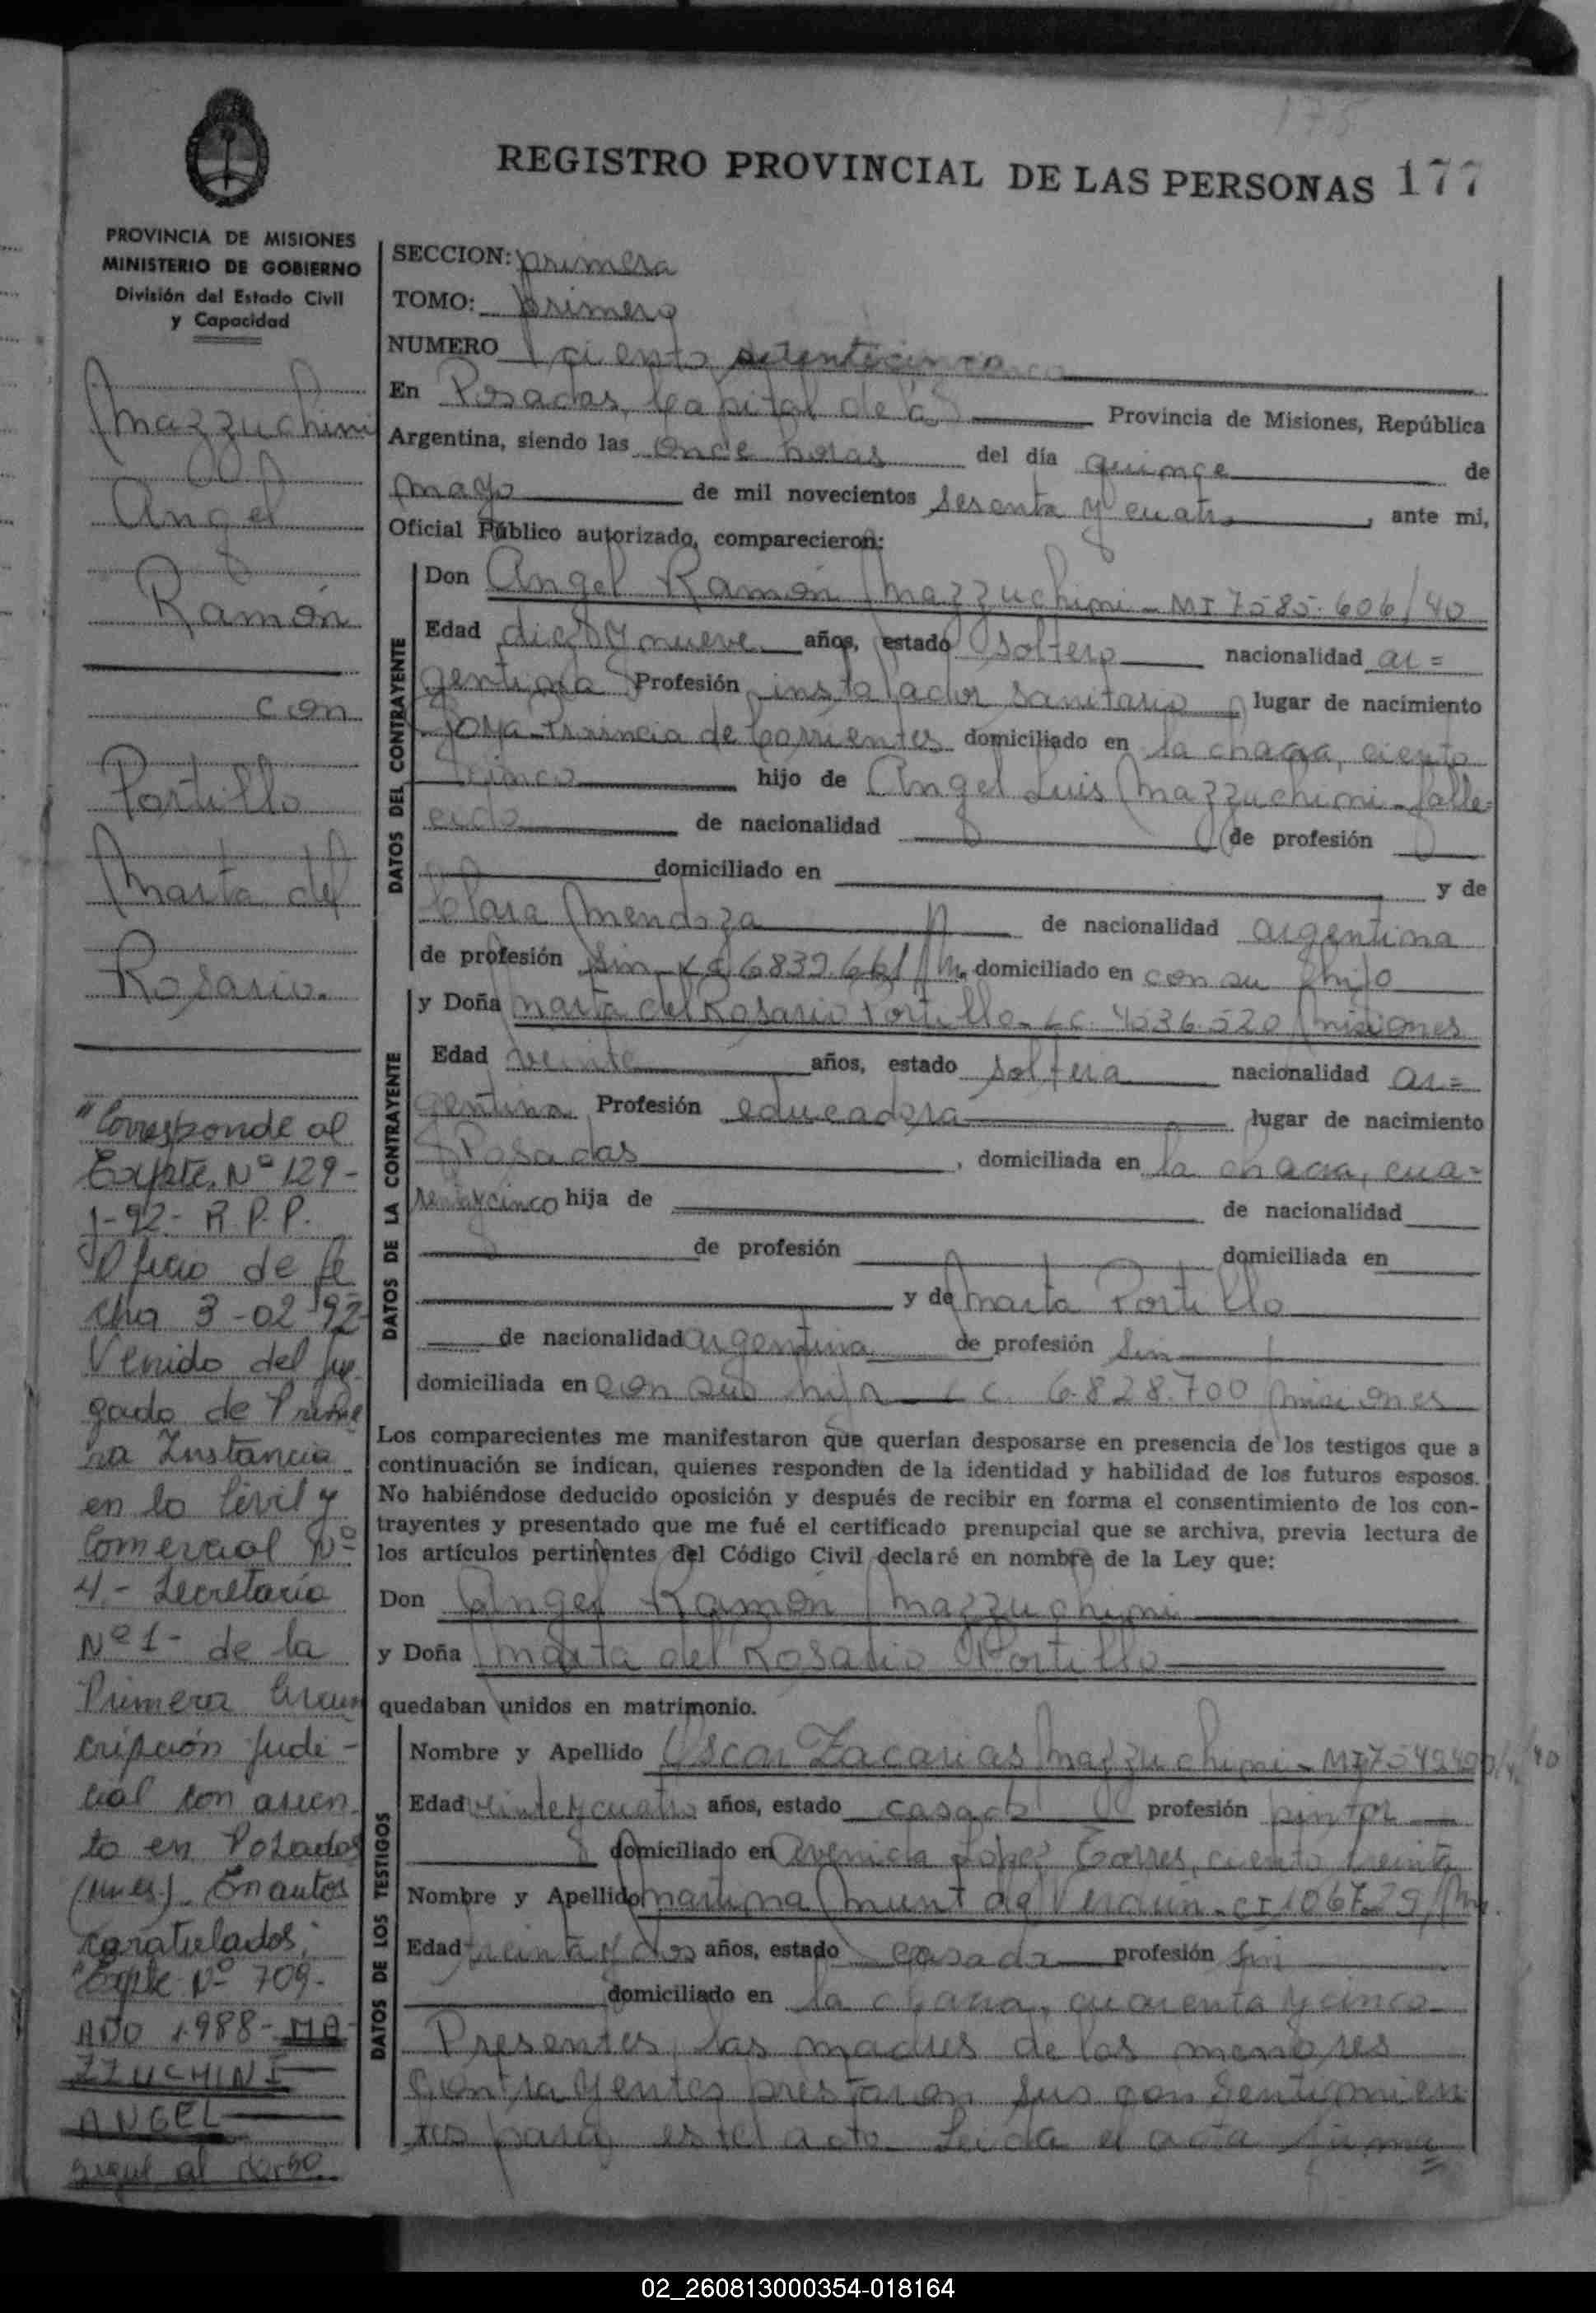 175
REGISTRO PROVINCIAL DE LAS PERSONAS 177
PROVINCIA DE MISIONES
MINISTERIO DE GOBIERNO
División del Estado Civil
y Capacidad
Mazzuchini
Angel
Ramón
con
Portillo
Marta del
Rosario.
"Corresponde al
Expte. Nº 129-
J-92- R.P.P.
Oficio de fe
cha 3-02-92-
Venido del Juz
gado de Prime
ra Instancia
en lo Civil y
Comercial Nº
4.- Secretaría
Nº 1- de la
Primera Circuns
cripción Judi-
cial con asien
to en Posadas
(mnes). En autos
caratulados:
"Expte Nº 709-
AÑO 1.988- MA
ZZUCHINI
ANGEL
sigue al dorso
SECCION: primera
TOMO: primero
NUMERO ciento setenticinco
En Posadas, Capital de la Provincia de Misiones, República
Argentina, siendo las once horas del día quince de
mayo de mil novecientos sesenta y cuatro, ante mi,
Oficial Público autorizado, comparecieron:
DATOS DEL CONTRAYENTE
Don Angel Ramón Mazzuchini - MI 7585.606/40
Edad diez y nueve años, estado soltero nacionalidad ar=
gentina Profesión instalador sanitario lugar de nacimiento
Goya - Provincia de Corrientes domiciliado en la chacra, ciento
cinco hijo de Angel Luis Mazzuchini - falle=
cido de nacionalidad de profesión
domiciliado en y de
Clara Mendoza de nacionalidad argentina
de profesión sin - domiciliado en con su hijo
DATOS DE LA CONTRAYENTE
y Doña Marta del Rosario Portillo - LC. 4536.520 Misiones
Edad veinte años, estado soltera nacionalidad ar=
gentina Profesión educadora lugar de nacimiento
Posadas, domiciliada en la chacra, cua=
rentaycinco hija de de nacionalidad
de profesión domiciliada en
y de Marta Portillo
de nacionalidad argentina de profesión sin
domiciliada en con su hija LC. 6.828.700 Misiones
Los comparecientes me manifestaron que querían desposarse en presencia de los testigos que a
continuación se indican, quienes responden de la identidad y habilidad de los futuros esposos.
No habiéndose deducido oposición y después de recibir en forma el consentimiento de los con-
trayentes y presentado que me fué el certificado prenupcial que se archiva, previa lectura de
los artículos pertinentes del Código Civil declaré en nombre de la Ley que:
Don Angel Ramón Mazzuchini
y Doña Marta del Rosario Portillo
quedaban unidos en matrimonio.
DATOS DE LOS TESTIGOS
Nombre y Apellido Oscar Zacarias Mazzuchini - MI
Edad veinteycuatro años, estado casado profesión pintor
domiciliado en avenida López Torres, ciento treinta
Nombre y Apellido Martina Munt de Verdun - CI 106729/M.
Edad treinta y dos años, estado casada profesión sin
domiciliado en la chacra, cuarenta y cinco
Presentes las madres de los menores
contrayentes prestaron sus consentimien
tos para este acto. Leida el acta firma=
02_260813000354-018164